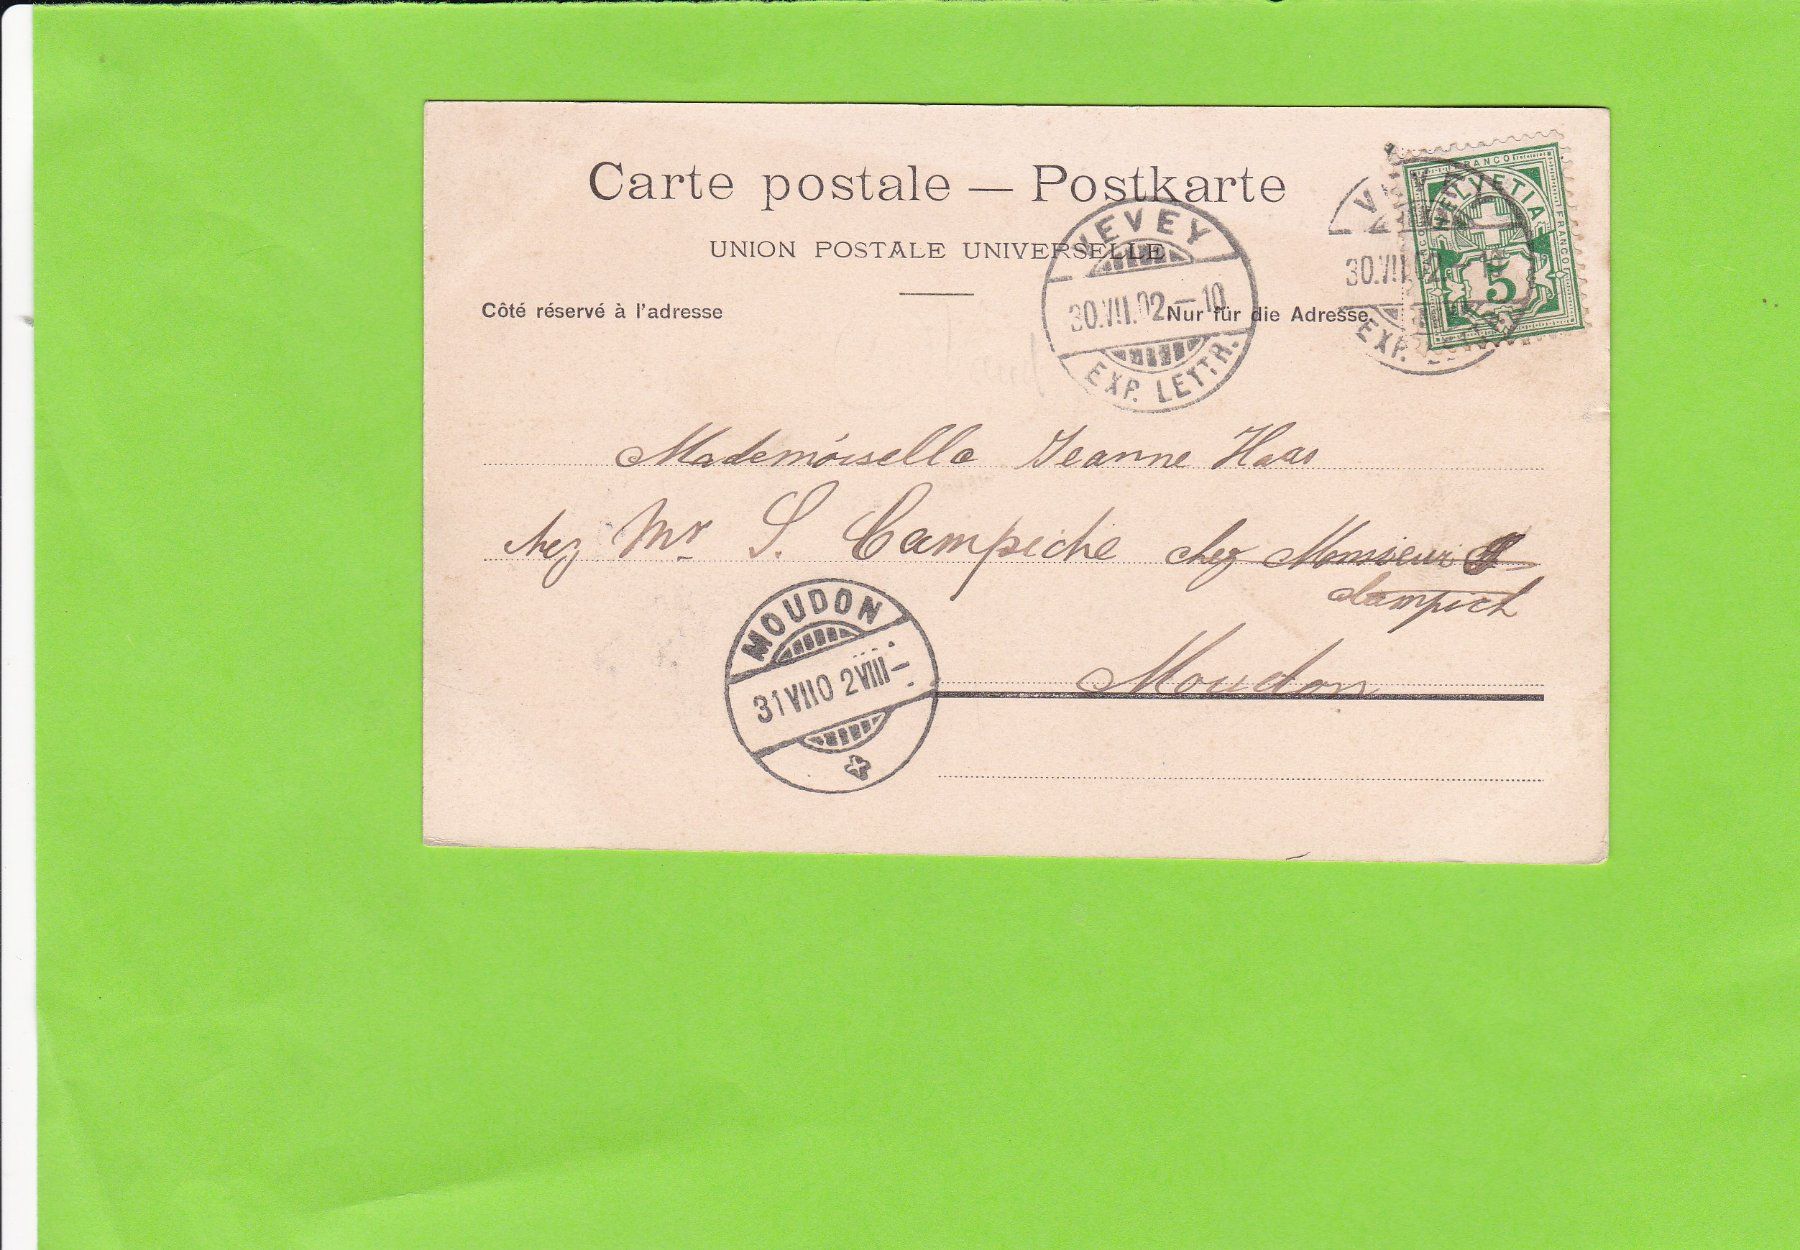 Carte postale — Postkarte
UNION POSTALE UNIVERSELLE
Côté réservé à l'adresse
Nur für die Adresse
VEVEY
30.VII.02—10
EXP. LETTR.
30.VII.02
EXP.
FRANCO
HELVETIA
FRANCO
5
Mademoiselle Jeanne Haas
chez Mr S. Campiche chez Monsieur
Campich
Moudon
MOUDON
31 VII 02 VIII—